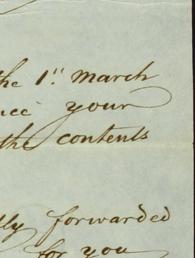 the 1st. March
your
the contents
forwarded
for you